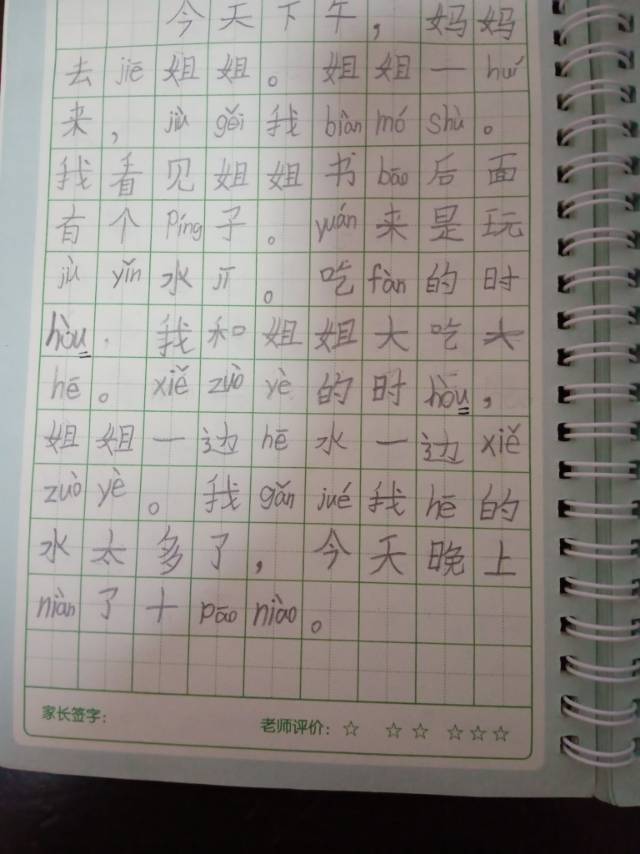 今天下午，妈妈
去jiē姐姐。姐姐一huí
来，jiù gěi我biàn mó shù。
我看见姐姐书bāo后面
有个píng子。yuán来是玩
jù yǐn水jī。吃fàn的时
hòu，我和姐姐大吃大
hē。xiě zuò yè的时hòu，
姐姐一边hē水一边xiě
zuò yè。我gǎn jué我hē的
水太多了，今天晚上
niàn了十pāo niào。
家长签字： 老师评价：☆ ☆☆ ☆☆☆